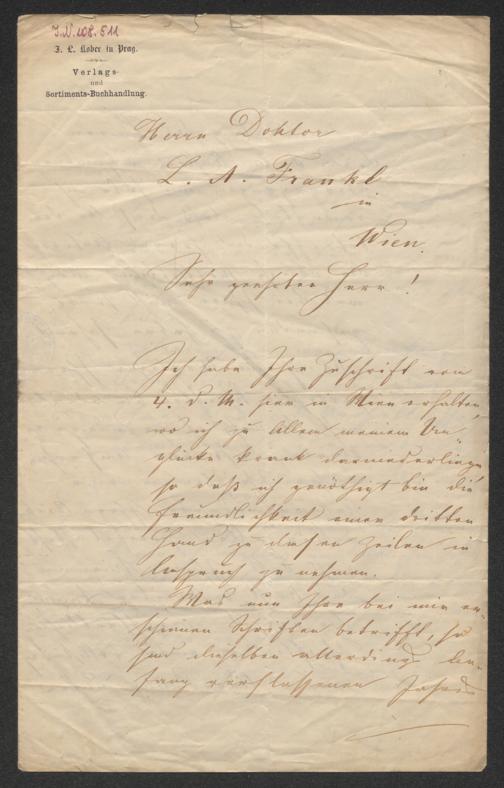 I.N. 108.511
J. L. Kober in Prag.
Verlags-
und
Sortiments-Buchhandlung.
Herrn Doktor
L. A. Frankl
in
Wien.
Sehr geehrter Herr!
Ich habe Ihre Zuschrift vom
4. d. M. hier in Wien erhalten,
wo ich zu Allem meinem Un-
glücke krank darniederliege
so daß ich genöthigt bin die
Freundlichkeit einer dritten
Hand zu diesen Zeilen in
Anspruch zu nehmen.
Was nun Ihre bei mir er-
schienenen Schriften betrifft, so
sind dieselben allerdings An-
fang verflossenen Jahres